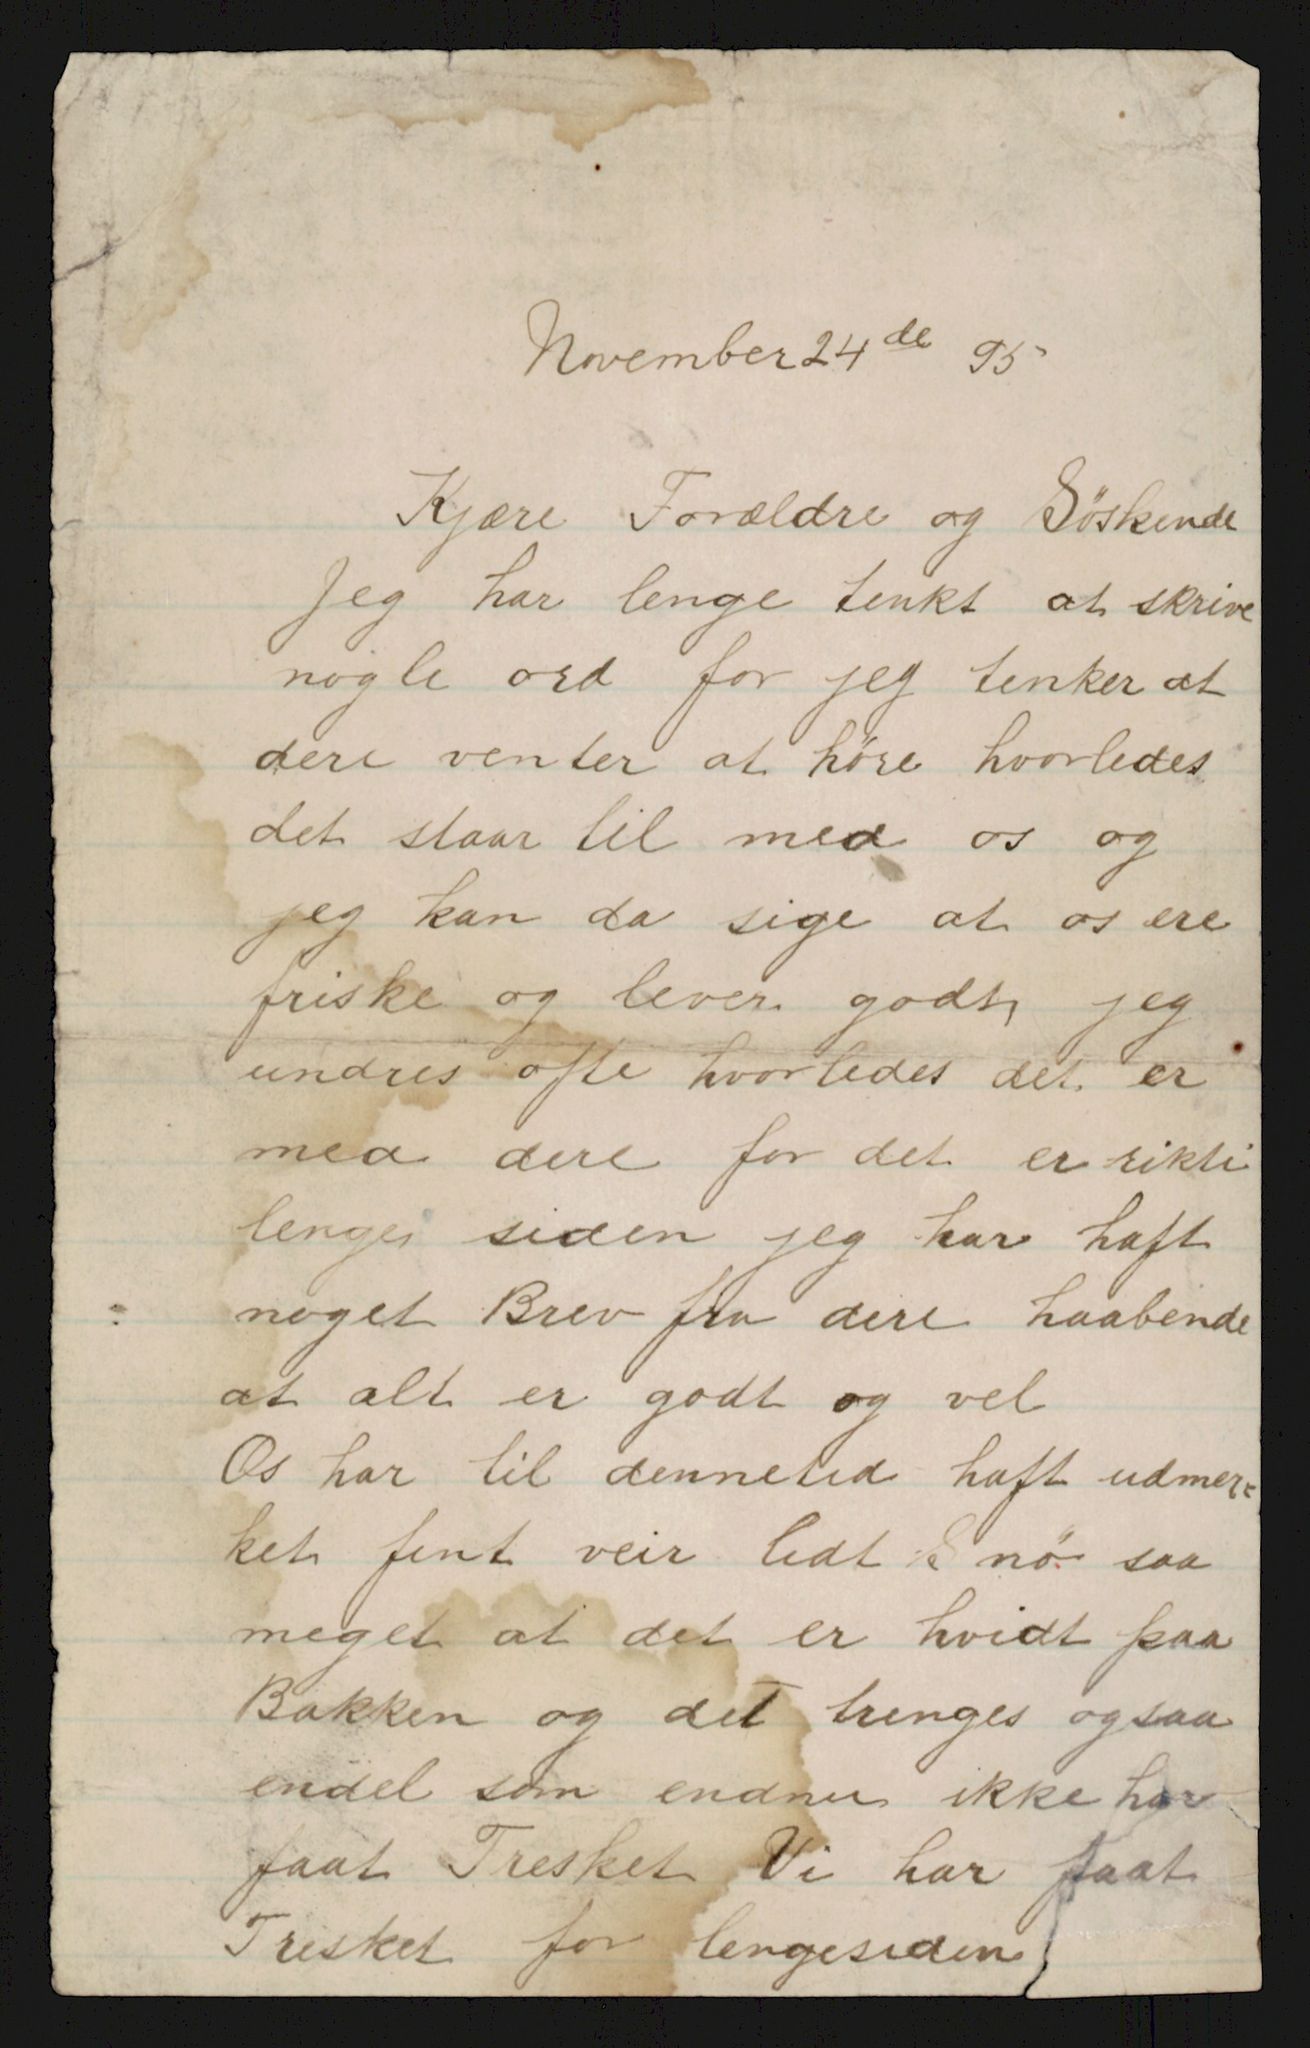 November 24de 95
Kjære Forældre og Söskende
Jeg har lenge tenkt at skrive
nogle ord for jeg tenker at
dere venter at höre hvorledes
det staar til med os og
jeg kan da sige at os ere
friske og lever godt, jeg
undres ofte hvorledes det er
med dere for det er rikti
lenge siden jeg har haft
noget Brev fra dere haabende
at alt er godt og vel
Os har til dennetid haft udmer=
ket fint veir lidt Snö saa
meget at det er hvidt paa
Bakken og det trenges ogsaa
endel som endnu ikke har
faat Tresket Vi har faat
Tresket for lengesiden